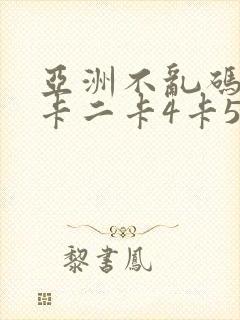 亞洲不亂碼
卡二卡4卡5
黎書鳳